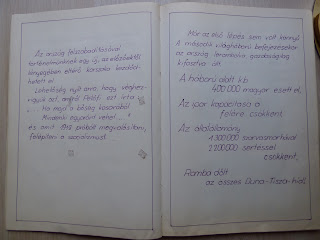 Az ország felszabadításával
történelmünknek egy új, az előzőektől
lényegében eltérő korszaka kezdőd-
hetett el.
Lehetőség nyílt arra, hogy véghez-
vigyük azt, amiről Petőfi ezt írta:
"... Ha majd a bőség kosarából
Mindenki egyaránt vehet..."
és amit már próbált megvalósítani,
felépíteni a szocializmust.
Már az első lépés sem volt könnyű.
A második világháború befejezésekor
az ország lerombolva, gazdaságilag
kifosztva állt.
A háború alatt kb.
400 000 magyar esett el.
Az ipar kapacitása a
felére csökkent.
Az állatállomány
1 300 000 szarvasmarhával
2 200 000 sertéssel
csökkent.
Romba dőlt
az összes Duna-Tisza-híd.